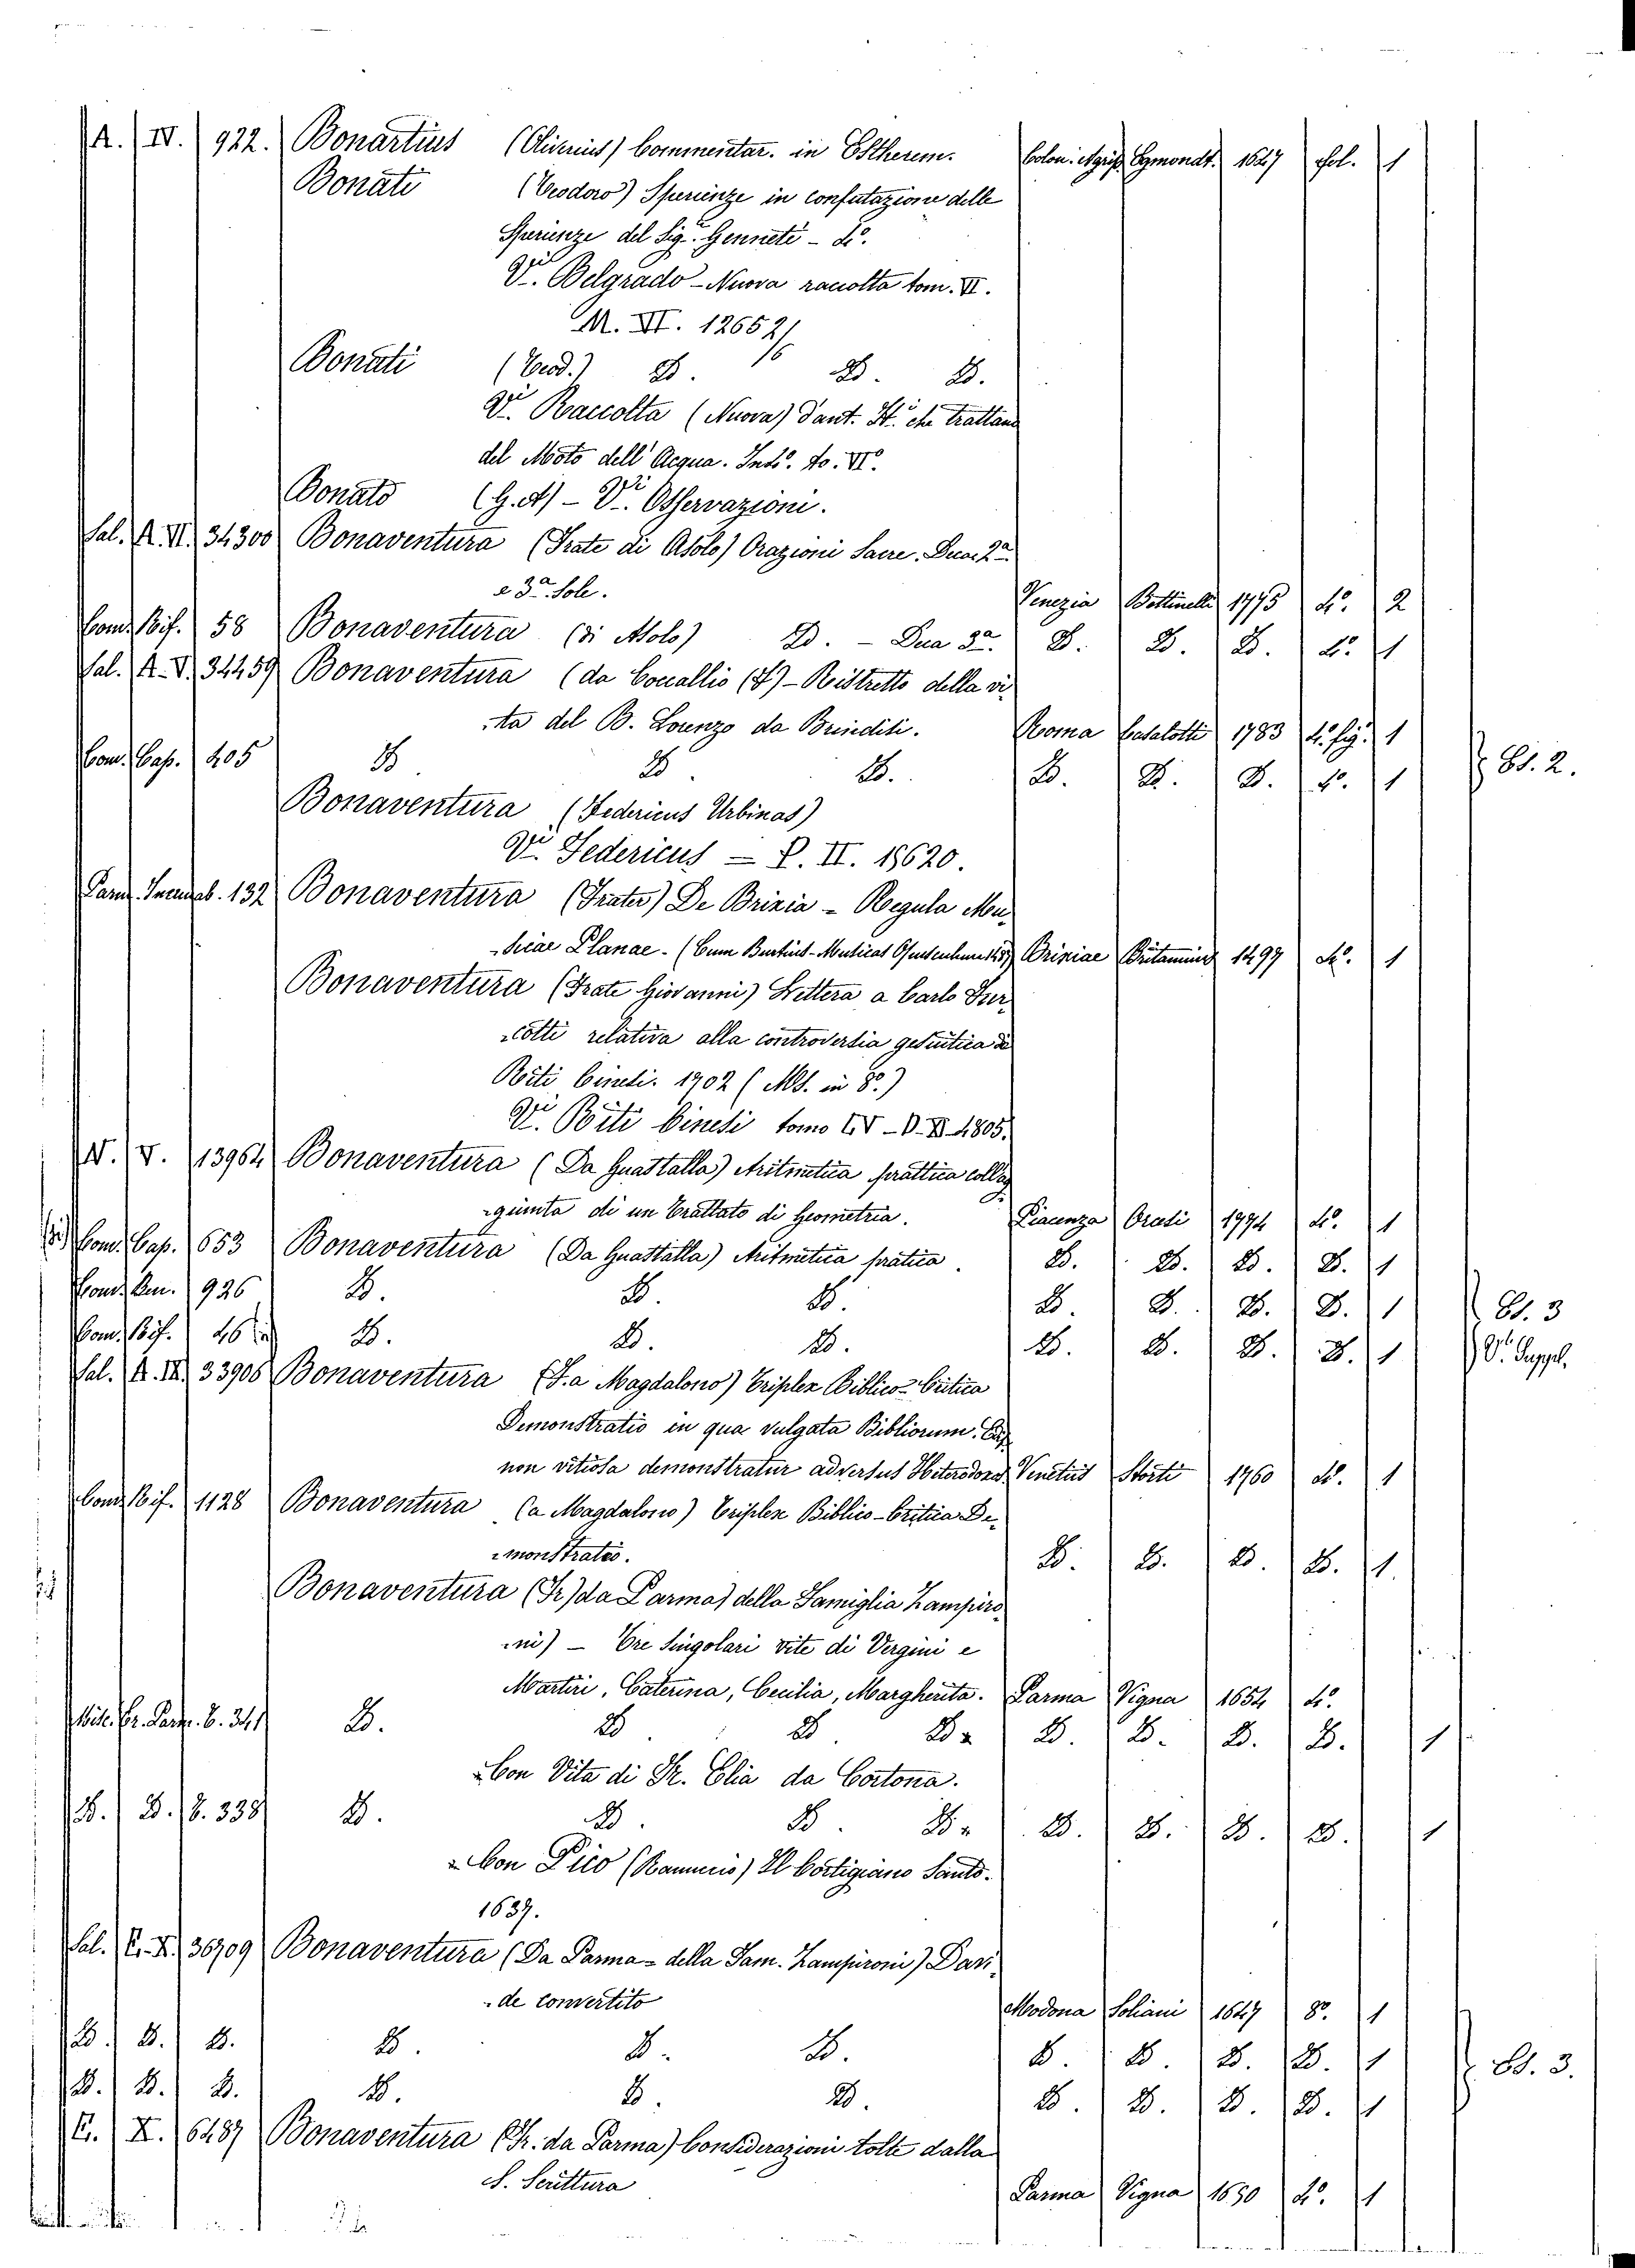 A. IV. 922. Bonartius (Oliverius) Commentar. in Estherem. Colon. Agripp. Egmondt. 1647 fol. 1
Bonati (Teodoro) Sperienze in confutazione delle
Sperienze del Sig.r Genneté - 4.o
V.i Belgrado - Nuova raccolta tom. VI.
M. VI. 12652/6
Bonati (Teod.) D. D. D.
V.i Raccolta (Nuova) d'aut. It.i che trattano
del Moto dell'Acqua. Ind.o to. VI.o
Bonato (G. A) - V.i Osservazioni.
Sal. A. VI. 34300 Bonaventura (Frate di Asolo) Orazioni Sacre. Dua. 2.a
e 3.a Sole. Venezia Bettinelli 1775 4.o 2
Com. Rif. 58 Bonaventura (di Asolo) D. - Dua 3.a D. D. D. 4.o 1
Sal. A. V. 34459 Bonaventura (da Coccallio (F) - Ristretto della vi
ta del B. Lorenzo da Brindisi. Roma Casalotti 1783 4. fig. 1
Com. Cap. 405 D D D. D. D. D. 4.o 1 Es. 2.
Bonaventura (Federicus Urbinas)
V.i Federicus = P. II. 15620.
Parm. Incunab. 132 Bonaventura (Frater) De Brixia - Regula Mu
sicae Planae - (Cum Burtius - Musices Opusculum) Brixiae Britannicus 1497 4.o 1
Bonaventura (Frate Giovanni) Lettera a Carlo Tur
cotti relativa alla controversia gesuitica de
Riti Cinesi. 1702 (MS. in 8.o)
V.i Riti Cinesi tomo LV - D. II 4805.
N. V. 13964 Bonaventura (Da Guastalla) Aritmetica prattica coll'ag
giunta di un Trattato di Geometria. Piacenza Orcesi 1794 4.o 1
Com. Cap. 653 Bonaventura (Da Guastalla) Aritmetica pratica. D. D. D. D. 1
Com. Ben. 926 D. D. D. D. D. D. D. 1 Es. 3
Com. Rif. 46 D. D. D. D. D. D. D. 1 V.i Suppl.
Sal. A. IX. 33906 Bonaventura (F. a Magdalono) Triplex Biblico-Critica
Demonstratio in qua vulgata Bibliorum
non vitiosa demonstratur adversus Heterodoxos Venetiis Storti 1760 4.o 1
Com. Rif. 1128 Bonaventura (a Magdalono) Triplex Biblico-Critica De
monstratio. D. D. D. D. 1.
Bonaventura (Fr) da Parma) della Famiglia Zampiro
ni) - Tre Singolari vite di Vergini e
Martiri, Caterina, Cecilia, Margherita. Parma Vigna 1654 4.o
Misc. Er. Parm. 6. 341 D. D D. D = D. D. D. D. 1
Con Vita di Fr. Elia da Cortona.
D. D. 6. 338 D. D. D. D = D. D. D. D. 1
Con Pico (Ranuccio) Il Cortigiano Santo.
1637.
Sal. C. X. 36709 Bonaventura (Da Parma - della Fam. Zampironi) Dari
de convertito Modona Soliani 1647 8.o 1
D. D. D. D. D. D. D. D. D. D. 1
D. D. D. D. D. D. D. D. D. D. 1 Es. 3.
C. X. 6487 Bonaventura (Fr. da Parma) Considerazioni tolte dalla
S. Scrittura Parma Vigna 1650 4.o 1